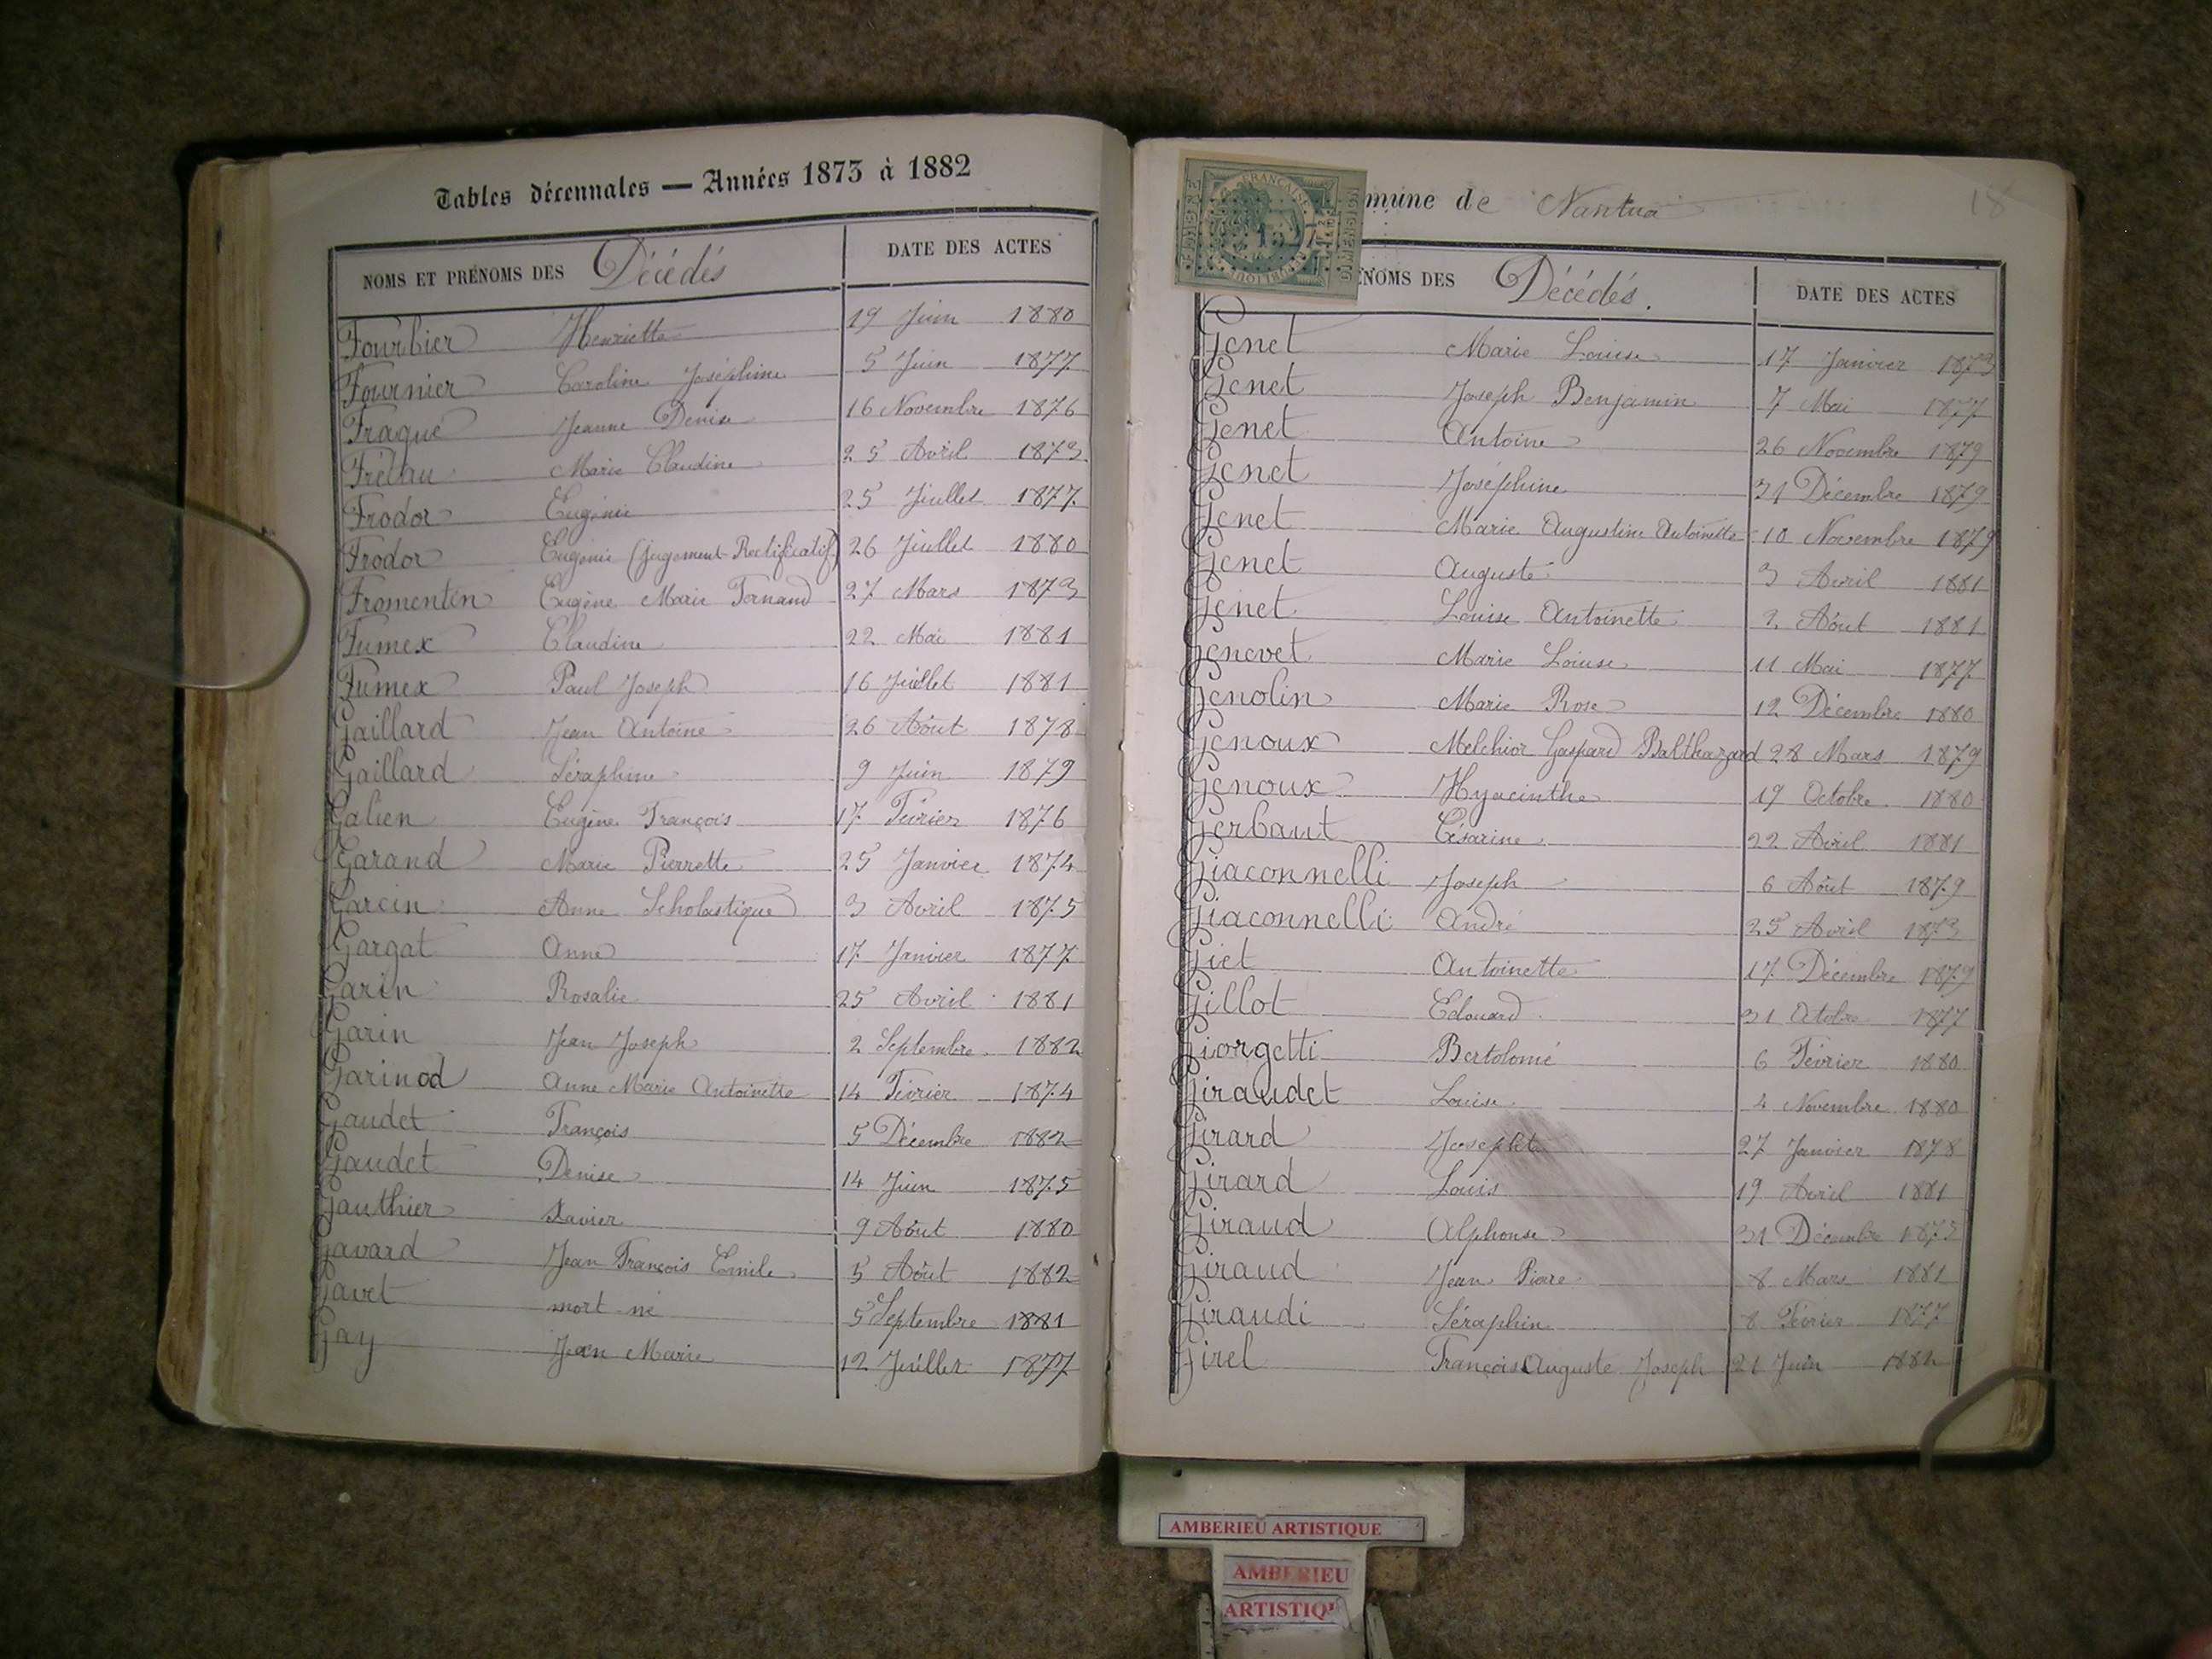 Tables décennales — Années 1873 à 1882
NOMS ET PRÉNOMS DES Décédés DATE DES ACTES
Fourbier Henriette 19 Juin 1880
Fournier Caroline Joséphine 5 Juin 1877
Fraque Jeanne Denise 16 Novembre 1876
Marie Claudine 25 Avril 1873
Frodor Eugénie 25 Juillet 1877
Frodor Eugénie (jugement Rectificatif) 26 Juillet 1880
Fromentin Eugène Marie Fernand 27 Mars 1873
Fumex Claudine 22 Mai 1881
Fumex Paul Joseph 16 Juillet 1881
Gaillard Jean Antoine 26 Aôut 1878
Gaillard Séraphine 9 Juin 1879
Galien Eugène François 17 Février 1876
Garand Marie Pierrette 25 Janvier 1874
Garcin Anne Scholastique 3 Avril 1875
Gargat Anne 17 Janvier 1877
Garin Rosalie 25 Avril 1881
Garin Jean Joseph 2 Septembre 1882
Garinod Anne Marie Antoinette 14 Février 1874
Gaudet François 5 Décembre 1882
Gaudet Denise 14 Juin 1875
Gauthier Xavier 9 Aôut 1880
Gavard Jean François Emile 5 Aôut 1882
Gavet mort-né 5 Septembre 1881
Gay Jean Marie 12 Juillet 1877
mune de Nantua 18
NOMS DES Décédés. DATE DES ACTES
Genet Marie Louise 17 Janvier 1873
Genet Joseph Benjamin 7 Mai 1877
Genet Antoine 26 Novembre 1879
Genet Joséphine 31 Décembre 1879
Genet Marie Augustine Antoinette 10 Novembre 1879
Genet Auguste 3 Avril 1881
Genet Louise Antoinette 2 Aôut 1881
Genevet Marie Louise 11 Mai 1877
Genolin Marie Rose 12 Décembre 1880
Genoux Melchior Gaspard Balthazard 28 Mars 1879
Genoux Hyacinthe 19 Octobre 1880
Gerbaut Césarine 22 Avril 1881
Giaconnelli Joseph 6 Aôut 1879
Giaconnelli André 25 Avril 1873
Giet Antoinette 17 Décembre 1879
Gillot Edouard 31 Octobre 1877
Giorgetti Bertolomé 6 Février 1880
Giraudet Louise 4 Novembre 1880
Girard Josephte 27 Janvier 1878
Girard Louis 19 Avril 1881
Giraud Alphonse 31 Décembre 1873
Giraud Jean Pierre 8 Mars 1881
Giraudi Séraphin 8 Février 1877
Girel François Auguste Joseph 21 Juin 1882
AMBERIEU ARTISTIQUE
AMBERIEU
ARTISTIQU